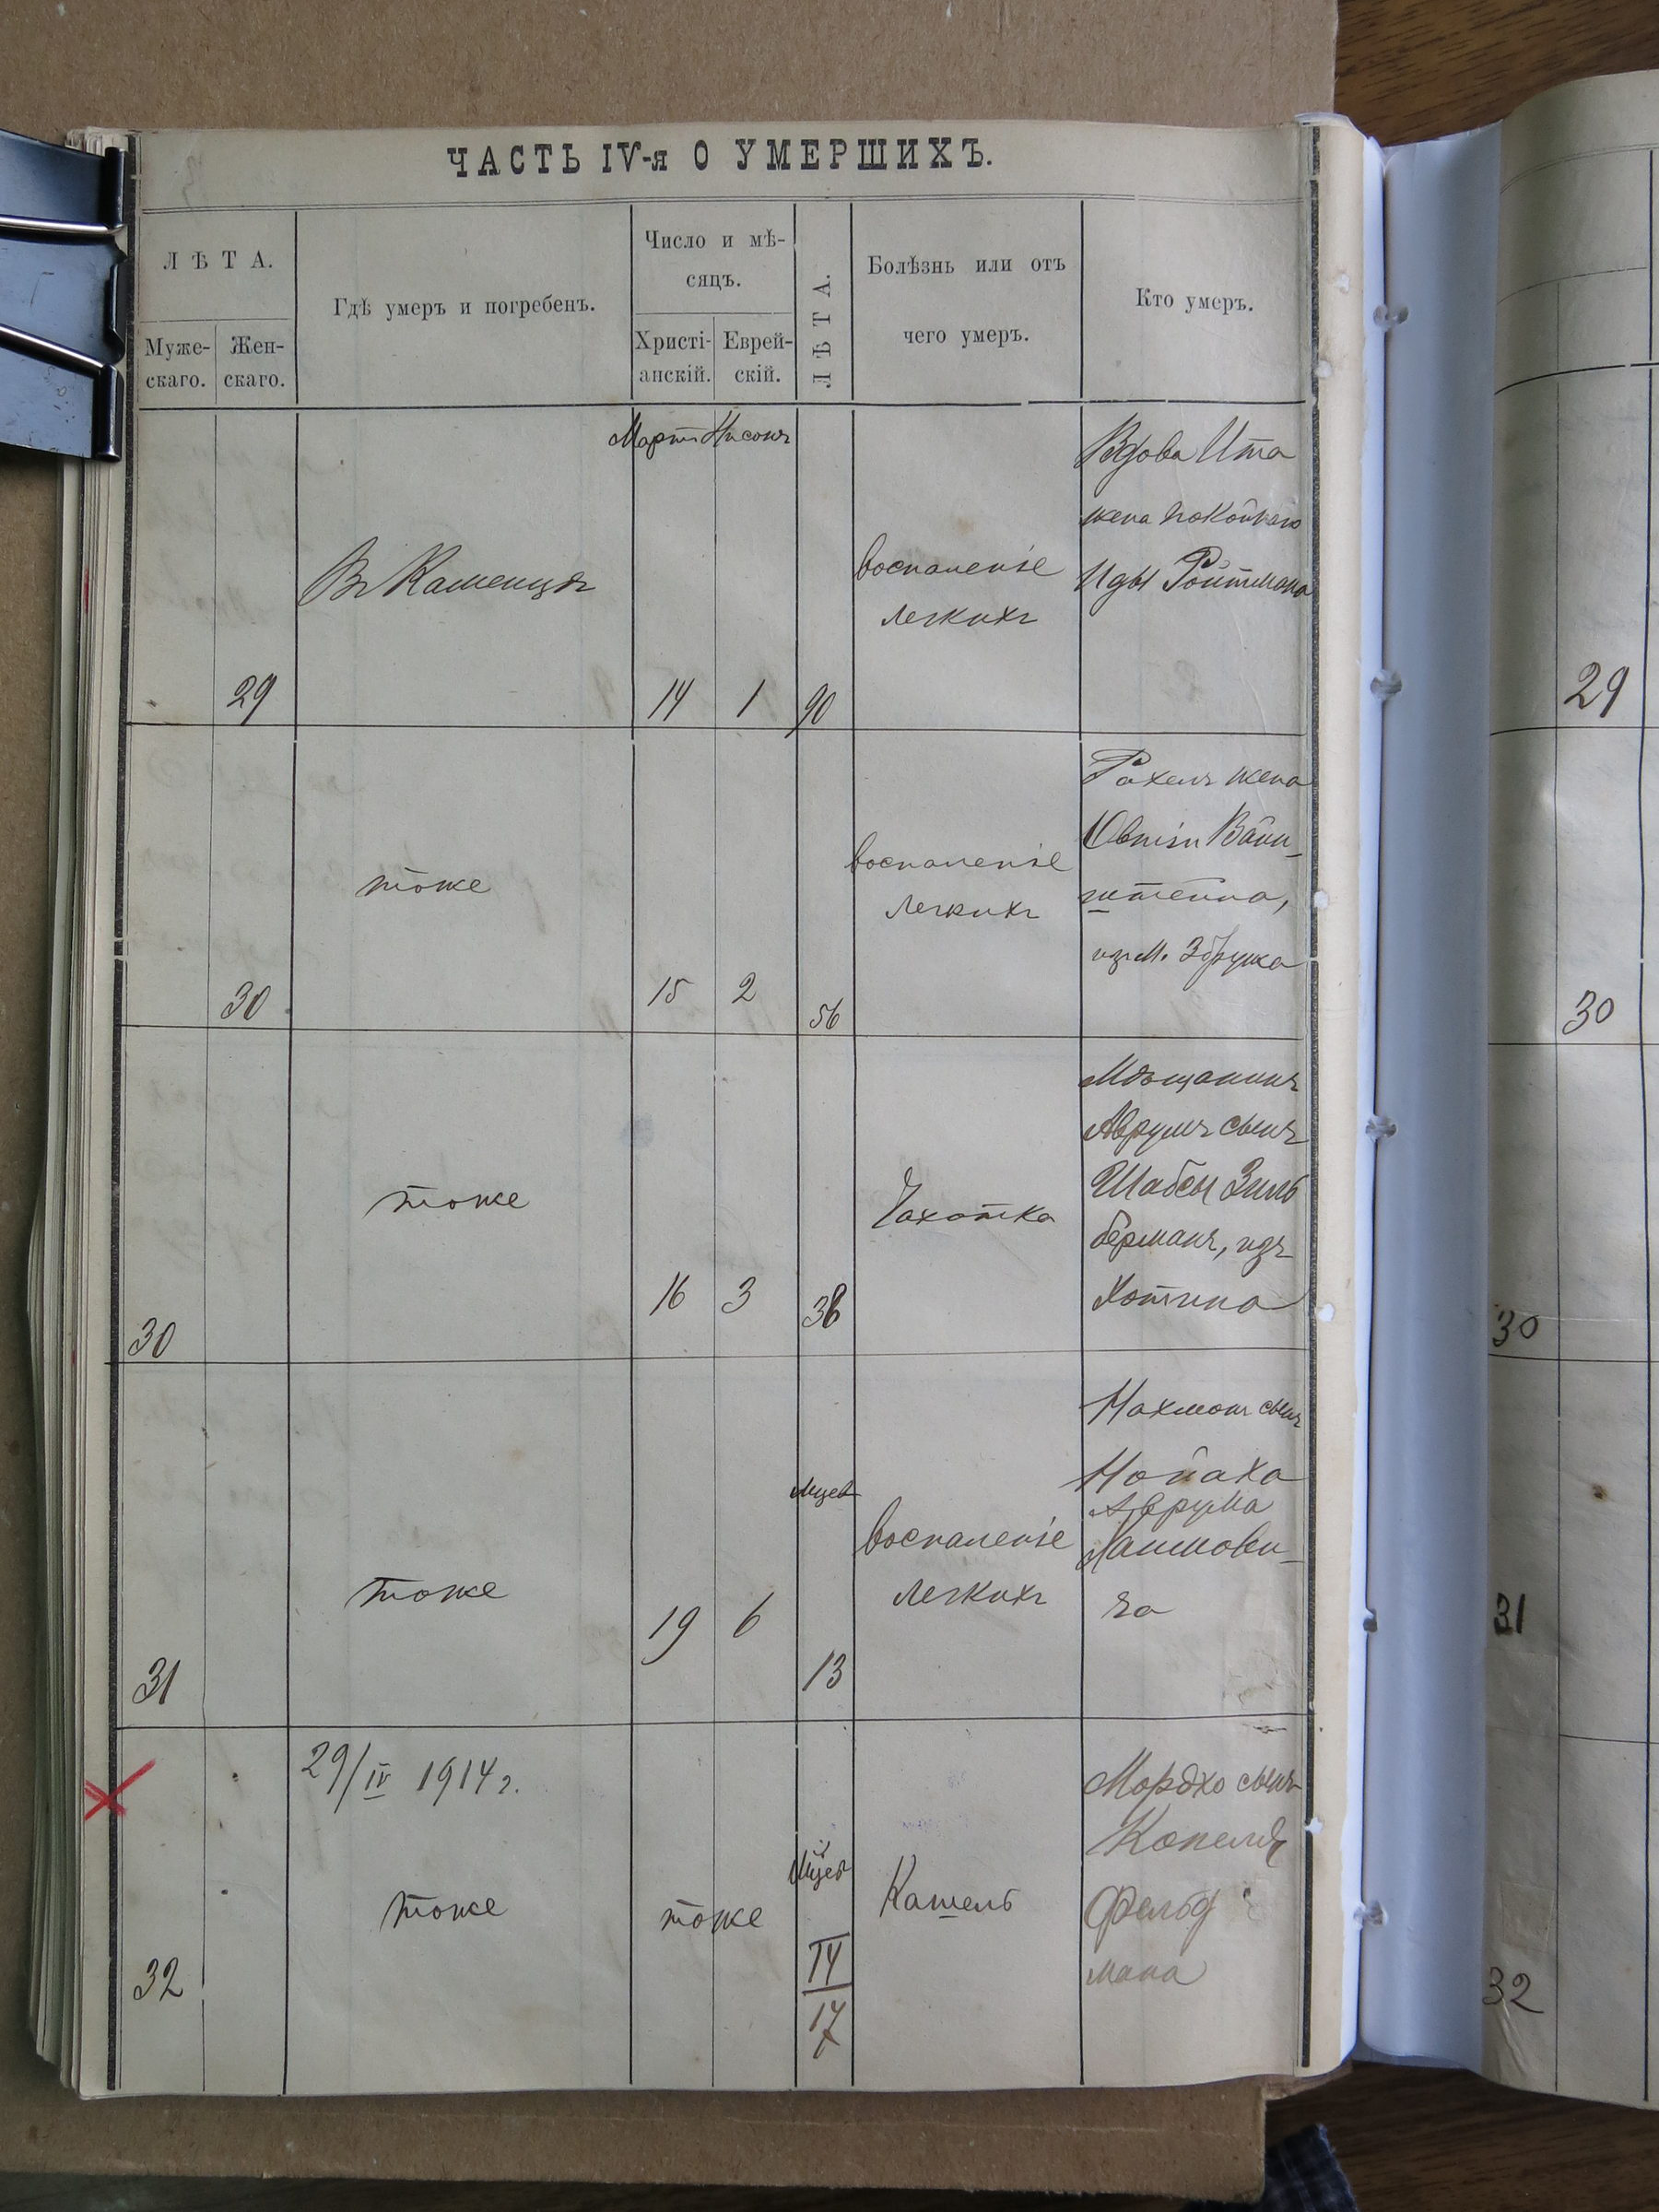 ЧАСТЬ IV-я О УМЕРШИХЪ.
ЛѢТА.
Муже-
скаго.
Жен-
скаго.
Гдѣ умеръ и погребенъ.
Число и мѣ-
сяцъ.
Христі-
анскій.
Еврей-
скій.
ЛѢТА.
Болѣзнь или отъ
чего умеръ.
Кто умеръ.
Мартъ Нисонъ
29
Въ Каменцѣ
14
1
90
воспаленіе
легкихъ
Вдова Ита
жена покойнаго
Иды Ройтмана
29
30
тоже
15
2
56
воспаленіе
легкихъ
Рохель жена
Вайн-
штейна,
изъ м. Збружа
30
30
тоже
16
3
38
Чахотка
Мѣщанинъ
Аврумъ сынъ
Шабсы Зиль
берманъ, изъ
Хотина
30
31
тоже
19
6
мцев
13
воспаленіе
легкихъ
Нахманъ сынъ
Нойаха
Аврума
Хаимови-
ча
31
32
29/IV 1914 г.
тоже
тоже
мцев
14
17
Кашель
Мордхо сынъ
Копеля
Фельд
мана
32